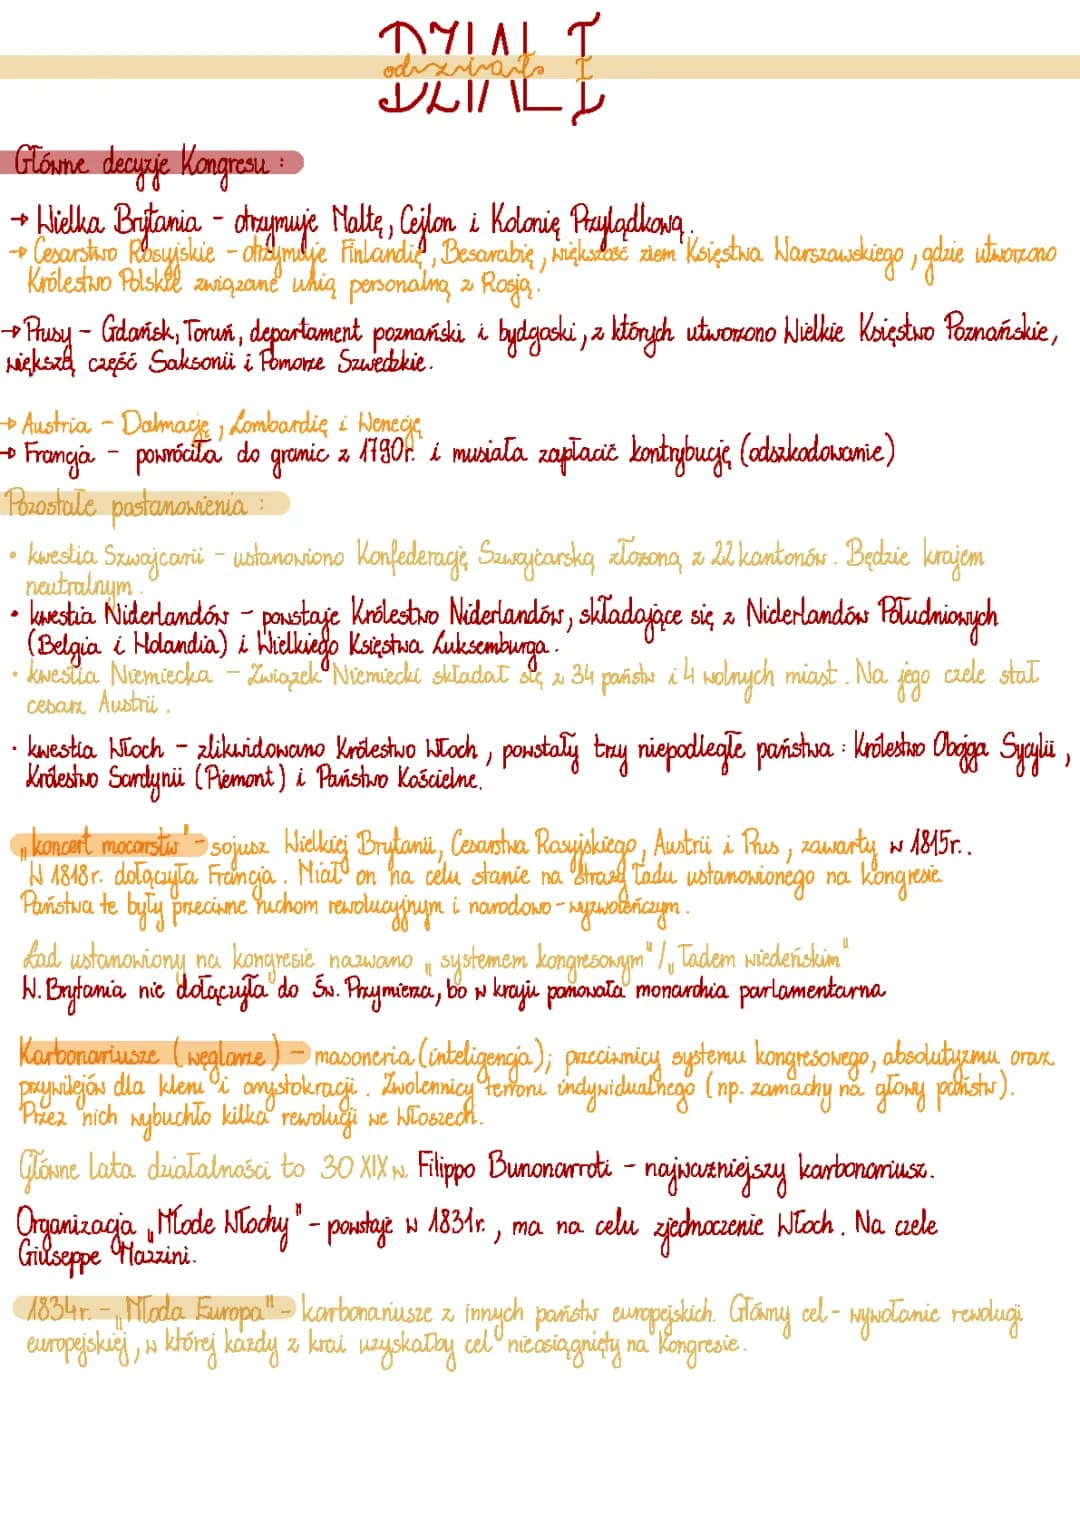 DZIAŁ I
odziało I
Główne decyzje Kongresu :
→ Wielka Brytania - otrzymuje Maltę, Cejlon i Kolonię Przylądkową.
→ Cesarstwo Rosyjskie - otrzymuje Finlandię, Besarabię, większość ziem Księstwa Warszawskiego, gdzie utworzono
Królestwo Polskie związane unią personalną z Rosją.
→ Prusy - Gdańsk, Toruń, departament poznański i bydgoski, z których utworzono Wielkie Księstwo Poznańskie,
większą część Saksonii i Pomorze Szwedzkie.
→ Austria - Dalmację, Lombardię i Wenecję
→ Francja - powróciła do granic z 1790r. i musiała zapłacić kontrybucję (odszkodowanie)
Pozostałe postanowienia :
• kwestia Szwajcarii - ustanowiono Konfederację Szwajcarską złożoną z 22 kantonów. Będzie krajem
neutralnym.
• kwestia Niderlandów - powstaje Królestwo Niderlandów, składające się z Niderlandów Południowych
(Belgia i Holandia) i Wielkiego Księstwa Luksemburga.
• kwestia Niemiecka - Związek Niemiecki składał się z 34 państw i 4 wolnych miast. Na jego czele stał
cesarz Austrii.
• kwestia Włoch - zlikwidowano Królestwo Włoch, powstały trzy niepodległe państwa : Królestwo Obojga Sycylii,
Królestwo Sardynii (Piemont) i Państwo Kościelne.
„koncert mocarstw" - sojusz Wielkiej Brytanii, Cesarstwa Rosyjskiego, Austrii i Prus, zawarty w 1815r..
W 1818r. dołączyła Francja. Miał on na celu stanie na straży ładu ustanowionego na kongresie.
Państwa te były przeciwne ruchom rewolucyjnym i narodowo-wyzwoleńczym.
Ład ustanowiony na kongresie nazwano „systemem kongresowym"/„ładem wiedeńskim"
W. Brytania nie dołączyła do Św. Przymierza, bo w kraju panowała monarchia parlamentarna
Karbonariusze (węglarze) - masoneria (inteligencja); przeciwnicy systemu kongresowego, absolutyzmu oraz
przywilejów dla kleru i arystokracji. Zwolennicy terroru indywidualnego (np. zamachy na głowy państw).
Przez nich wybuchło kilka rewolucji we Włoszech.
Główne lata działalności to 30 XIX w. Filippo Bunonarroti - najważniejszy karbonariusz.
Organizacja „Młode Włochy" - powstaje w 1831r., ma na celu zjednoczenie Włoch. Na czele
Giuseppe Mazzini.
1834r. - „Młoda Europa" - karbonariusze z innych państw europejskich. Główny cel - wywołanie rewolucji
europejskiej, w której każdy z krai uzyskałby cel nieosiągnięty na Kongresie.